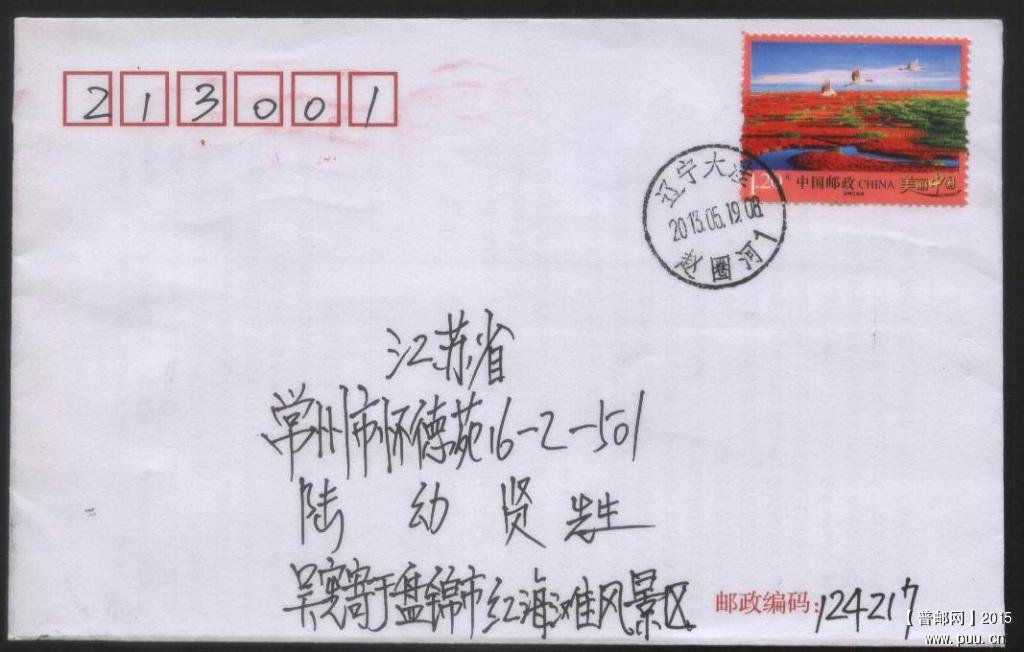 213001
1.20元 中国邮政 CHINA 美丽中国
辽宁大洼
2013.05.19.08
赵圈河1
江苏省
常州市怀德苑16-2-501
陆幼贤先生
吴寄于盘锦市红海滩风景区
邮政编码:124217
【普邮网】2015
www.puu.cn